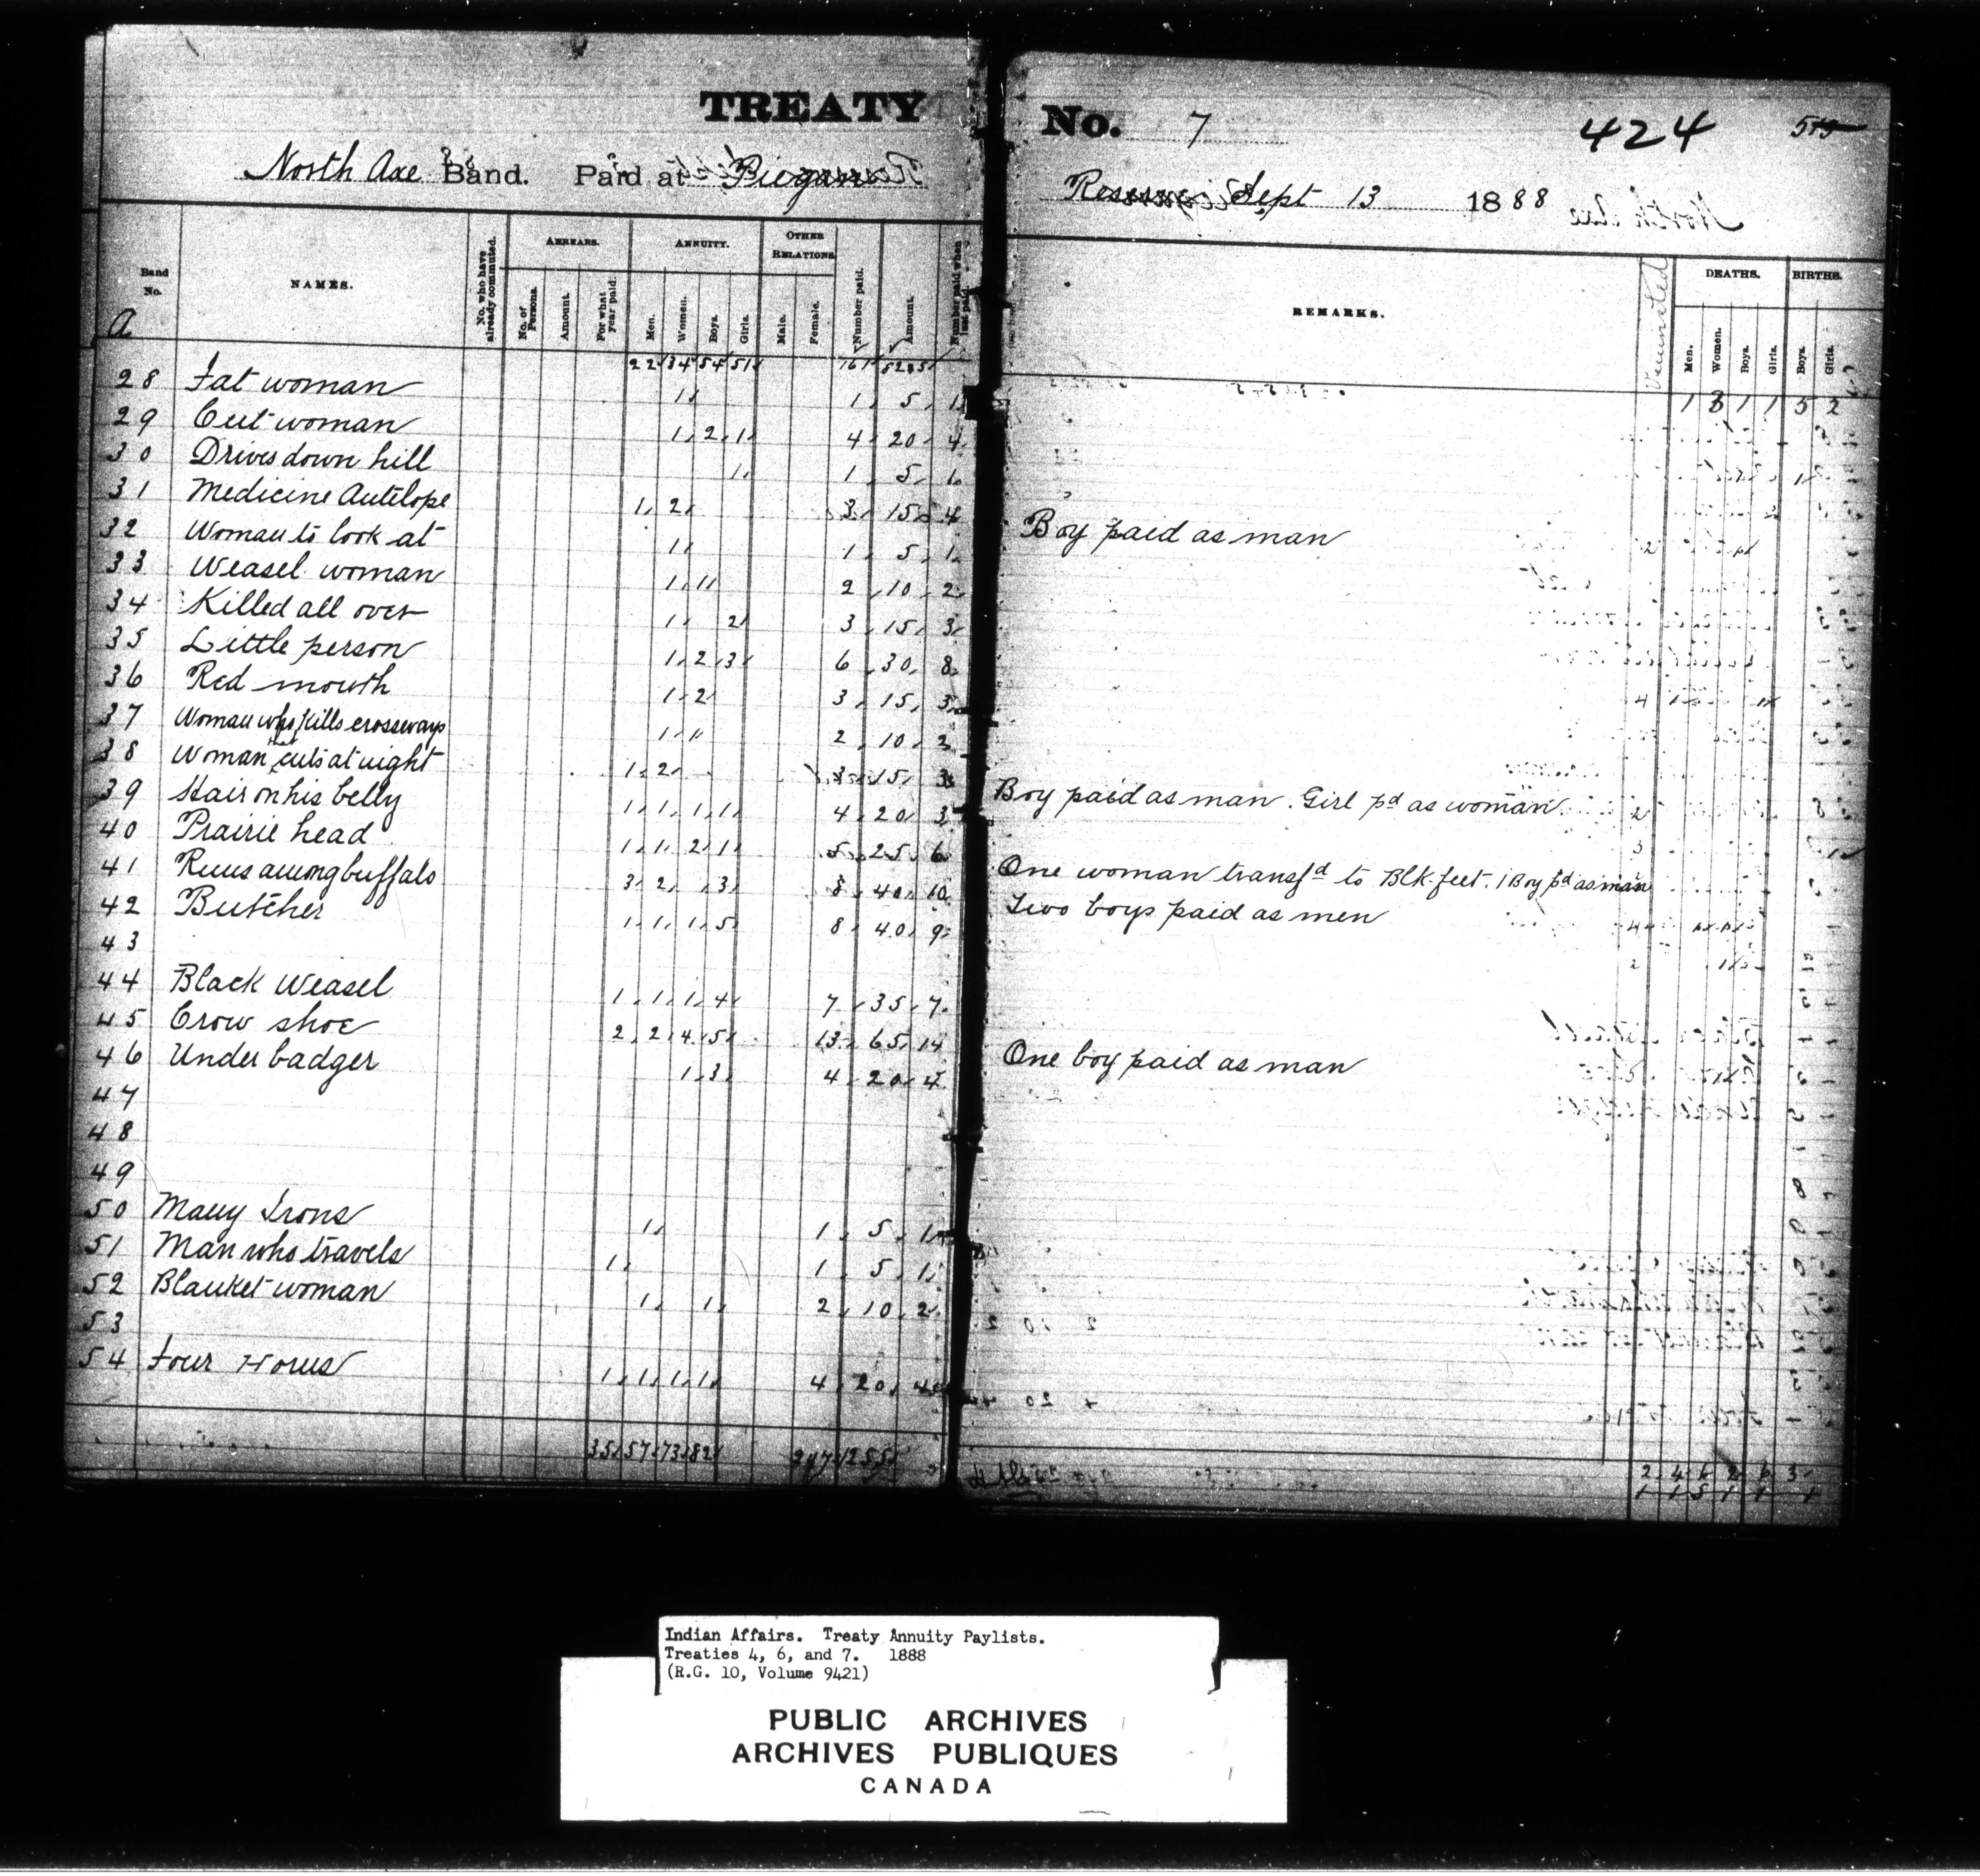 TREATY No. 7 424
North Axe Band. Paid at Piegan Reserve Sept 13 1888
Band No. NAMES. No. who have already commuted. ARREARS. ANNUITY. OTHER RELATIONS. Number paid. Amount. Number paid when last paid. REMARKS. DEATHS. BIRTHS.
No. of Persons. Amount. For what year paid. Men. Women. Boys. Girls. Male. Female. Men. Women. Boys. Girls. Boys. Girls.
A
22 34 54 51 161 1 3 1 1 5 2
28 Fat woman 1 1 5 1
29 Cut woman 1 2 1 4 20 4
30 Drives down hill 1 1 5 1
31 Medicine Antelope 1 2 3 15 4 Boy paid as man
32 Woman to look at 1 1 5 1
33 Weasel woman 1 1 2 10 2
34 Killed all over 1 2 3 15 3
35 Little person 1 2 3 6 30 8
36 Red mouth 1 2 3 15 3
37 Woman who kills crossways 1 1 2 10 2
38 Woman that cuts at night 1 2 3 15 3 Boy paid as man. Girl pd as woman
39 Hair on his belly 1 1 1 1 4 20 3
40 Prairie head 1 1 2 1 5 25 6 One woman transfd to Blk-feet. 1 Boy pd as man
41 Runs among buffalo 3 2 3 8 40 10 Two boys paid as men
42 Butcher 1 1 1 5 8 40 9
43
44 Black Weasel 1 1 1 4 7 35 7
45 Crow shoe 2 2 4 5 13 65 14 One boy paid as man
46 Under badger 1 3 4 20 4
47
48
49
50 Many Irons 1 1 5 1
51 Man who travels 1 1 5 1
52 Blanket woman 1 1 2 10 2
53
54 Four Horns 1 1 1 1 4 20 4
35 57 73 82 247 1255
Indian Affairs. Treaty Annuity Paylists.
Treaties 4, 6, and 7. 1888
(R.G. 10, Volume 9421)
PUBLIC ARCHIVES
ARCHIVES PUBLIQUES
CANADA